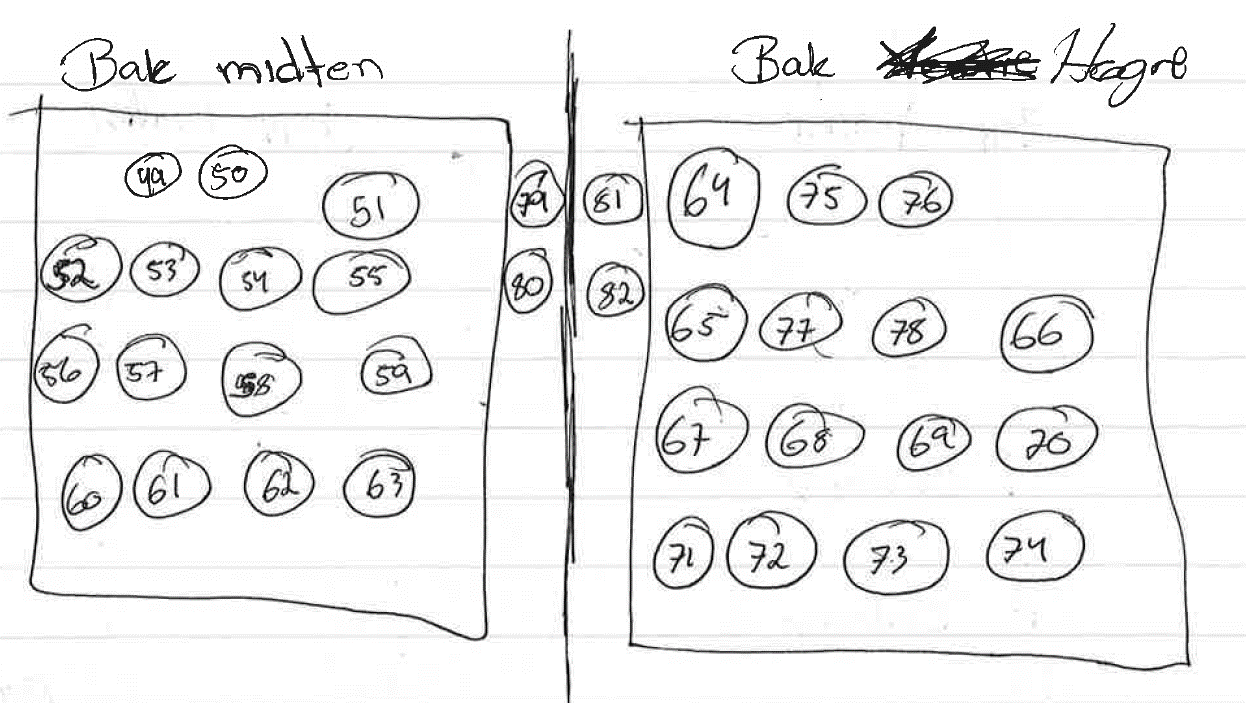 Bak midten
49 50
51
52 53 54 55
56 57 58 59
60 61 62 63
79 81
80 82
Bak Høgre
64 75 76
65 77 78 66
67 68 69 70
71 72 73 74